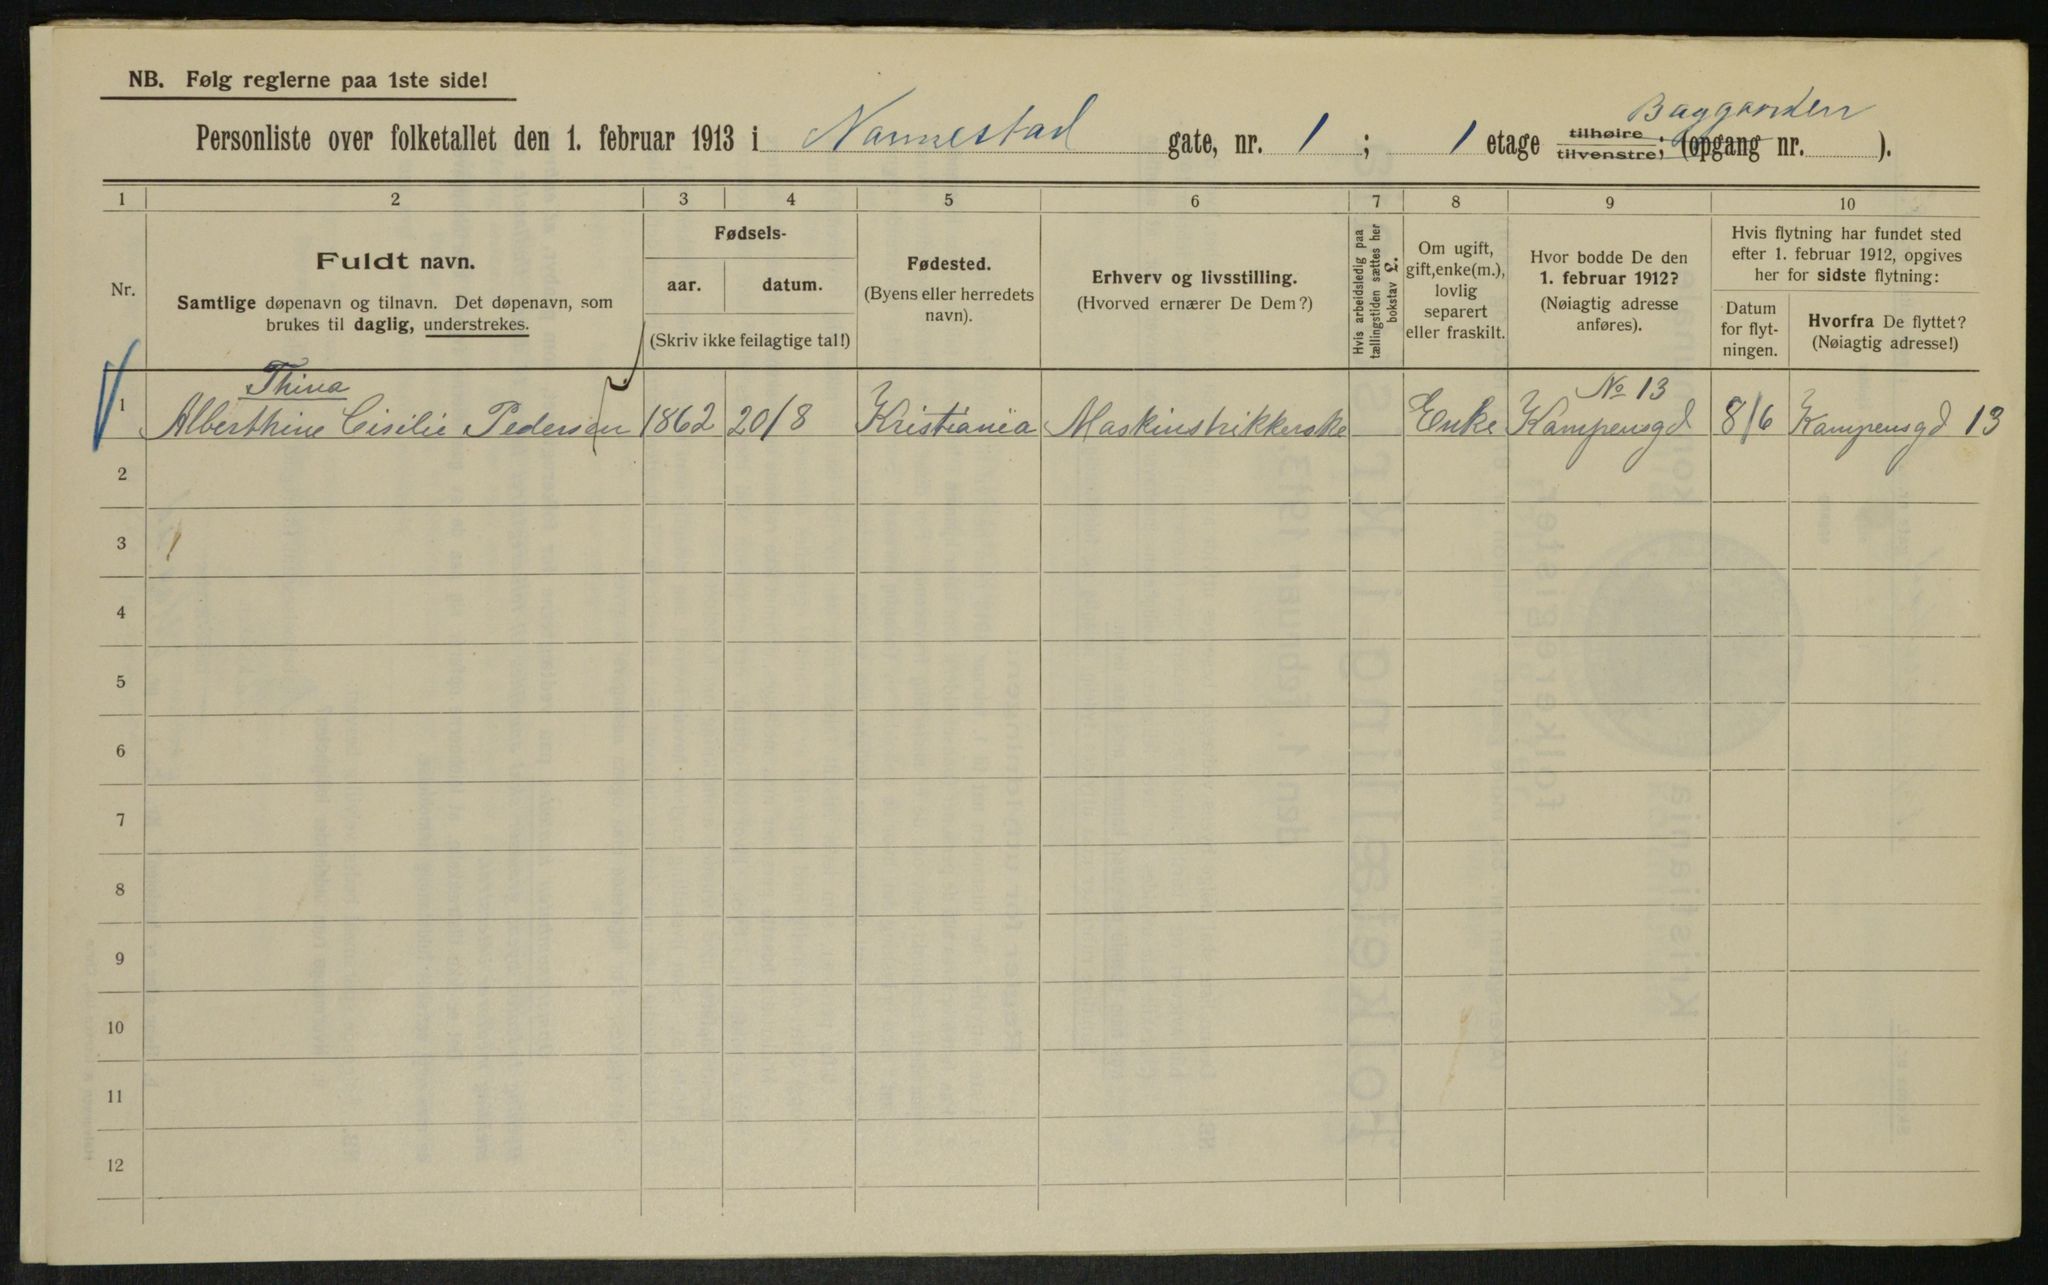 NB. Følg reglerne paa 1ste side!
Baggaarden
Personliste over folketallet den 1. februar 1913 i Nannestad gate, nr. 1; 1 etage tilhøire tilvenstre; (opgang nr. ).
1 2 3 4 5 6 7 8 9 10
Nr.
Fuldt navn.
Samtlige døpenavn og tilnavn. Det døpenavn, som
brukes til daglig, understrekes.
Fødsels-
aar. datum.
(Skriv ikke feilagtige tal!)
Fødested.
(Byens eller herredets
navn).
Erhverv og livsstilling.
(Hvorved ernærer De Dem?)
Hvis arbeidsledig paa
tællingstiden sættes her
bokstav L.
Om ugift,
gift, enke(m.),
lovlig
separert
eller fraskilt.
Hvor bodde De den
1. februar 1912?
(Nøiagtig adresse
anføres).
Hvis flytning har fundet sted
efter 1. februar 1912, opgives
her for sidste flytning:
Datum
for flyt-
ningen.
Hvorfra De flyttet?
(Nøiagtig adresse!)
Thina No 13
1 Alberthine Cisilie Pedersen 1862 20/8 Kristiania Maskinstrikkerske Enke Kampensgd 8/6 Kampensgd 13
2
3
4
5
6
7
8
9
10
11
12